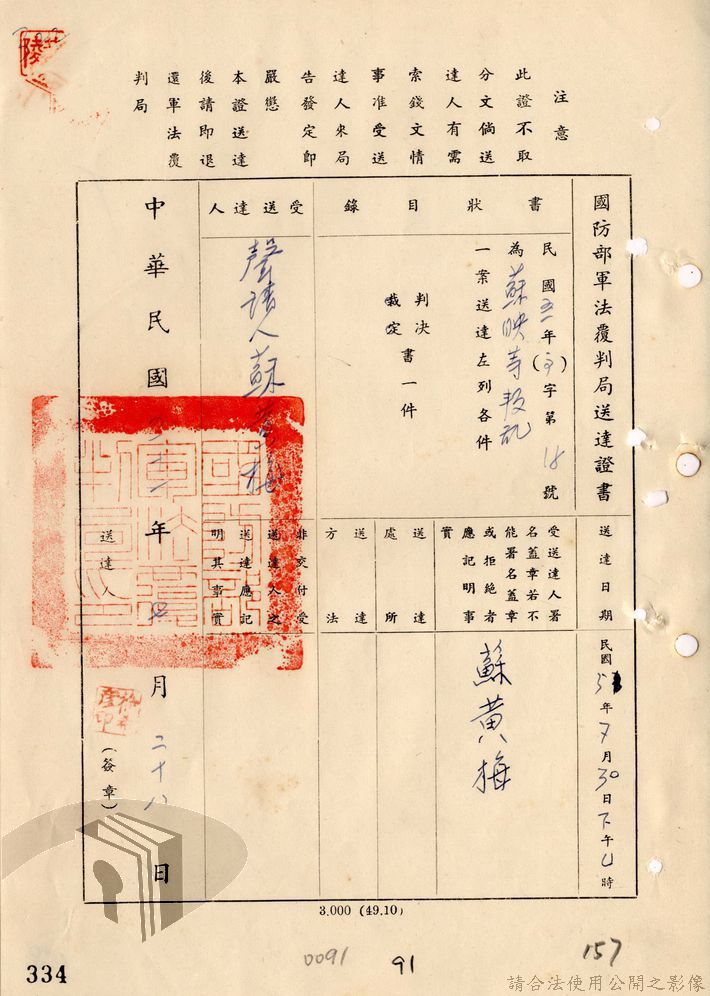 注意
此證不取
分文倘送
達人有需
索錢文情
事准受送
達人來局
告發定即
嚴懲
本證送達
後請即退
還軍法覆
判局
國防部軍法覆判局送達證書
書狀目錄
民國五一年( )字第18號
為蘇映等叛亂
一案送達左列各件
判決
裁定
書一件
受送達人
聲請人蘇黃梅
中華民國五十一年 月二十八日
送達日期
民國51年 月30日下午 時
受送達人署
名蓋章若不
能署名蓋章
或拒絕者
應記明事
實
蘇黃梅
送達處所
送達方法
非交付受
送達人之
送達應記
明其事實
送達人
(簽章)
3.000 (49.10)
0091
91
157
334
請合法使用公開之影像